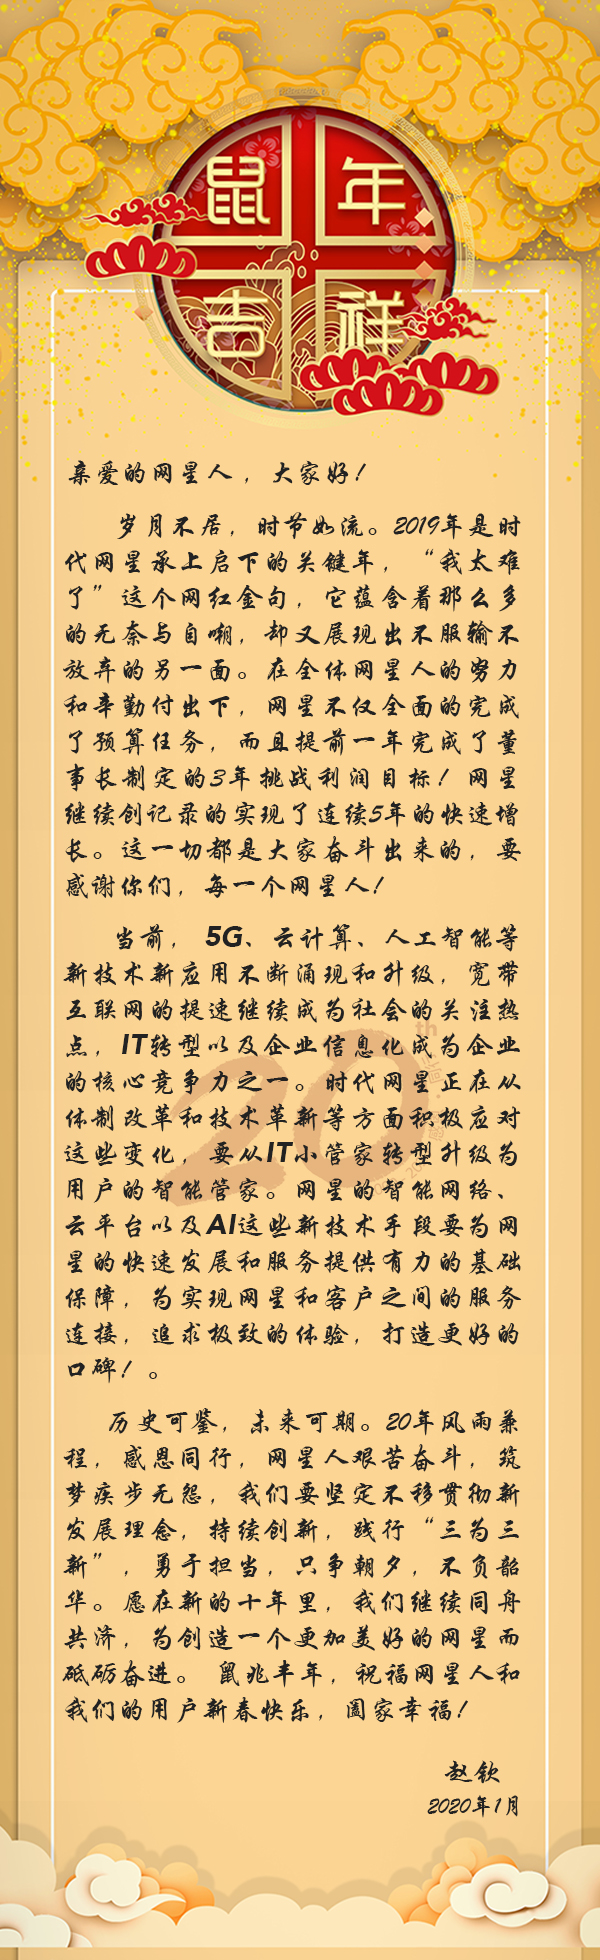 鼠年
吉祥
亲爱的网星人，大家好！
岁月不居，时节如流。2019年是时
代网星承上启下的关键年，“我太难
了”这个网红金句，它蕴含着那么多
的无奈与自嘲，却又展现出不服输不
放弃的另一面。在全体网星人的努力
和辛勤付出下，网星不仅全面的完成
了预算任务，而且提前一年完成了董
事长制定的3年挑战利润目标！网星
继续创记录的实现了连续5年的快速增
长。这一切都是大家奋斗出来的，要
感谢你们，每一个网星人！
当前，5G、云计算、人工智能等
新技术新应用不断涌现和升级，宽带
互联网的提速继续成为社会的关注热
点，IT转型以及企业信息化成为企业
的核心竞争力之一。时代网星正在从
体制改革和技术革新等方面积极应对
这些变化，要从IT小管家转型升级为
用户的智能管家。网星的智能网络、
云平台以及AI这些新技术手段要为网
星的快速发展和服务提供有力的基础
保障，为实现网星和客户之间的服务
连接，追求极致的体验，打造更好的
口碑！。
历史可鉴，未来可期。20年风雨兼
程，感恩同行，网星人艰苦奋斗，筑
梦疾步无怨，我们要坚定不移贯彻新
发展理念，持续创新，践行“三为三
新”，勇于担当，只争朝夕，不负韶
华。愿在新的十年里，我们继续同舟
共济，为创造一个更加美好的网星而
砥砺奋进。 鼠兆丰年，祝福网星人和
我们的用户新春快乐，阖家幸福！
赵钦
2020年1月
20th